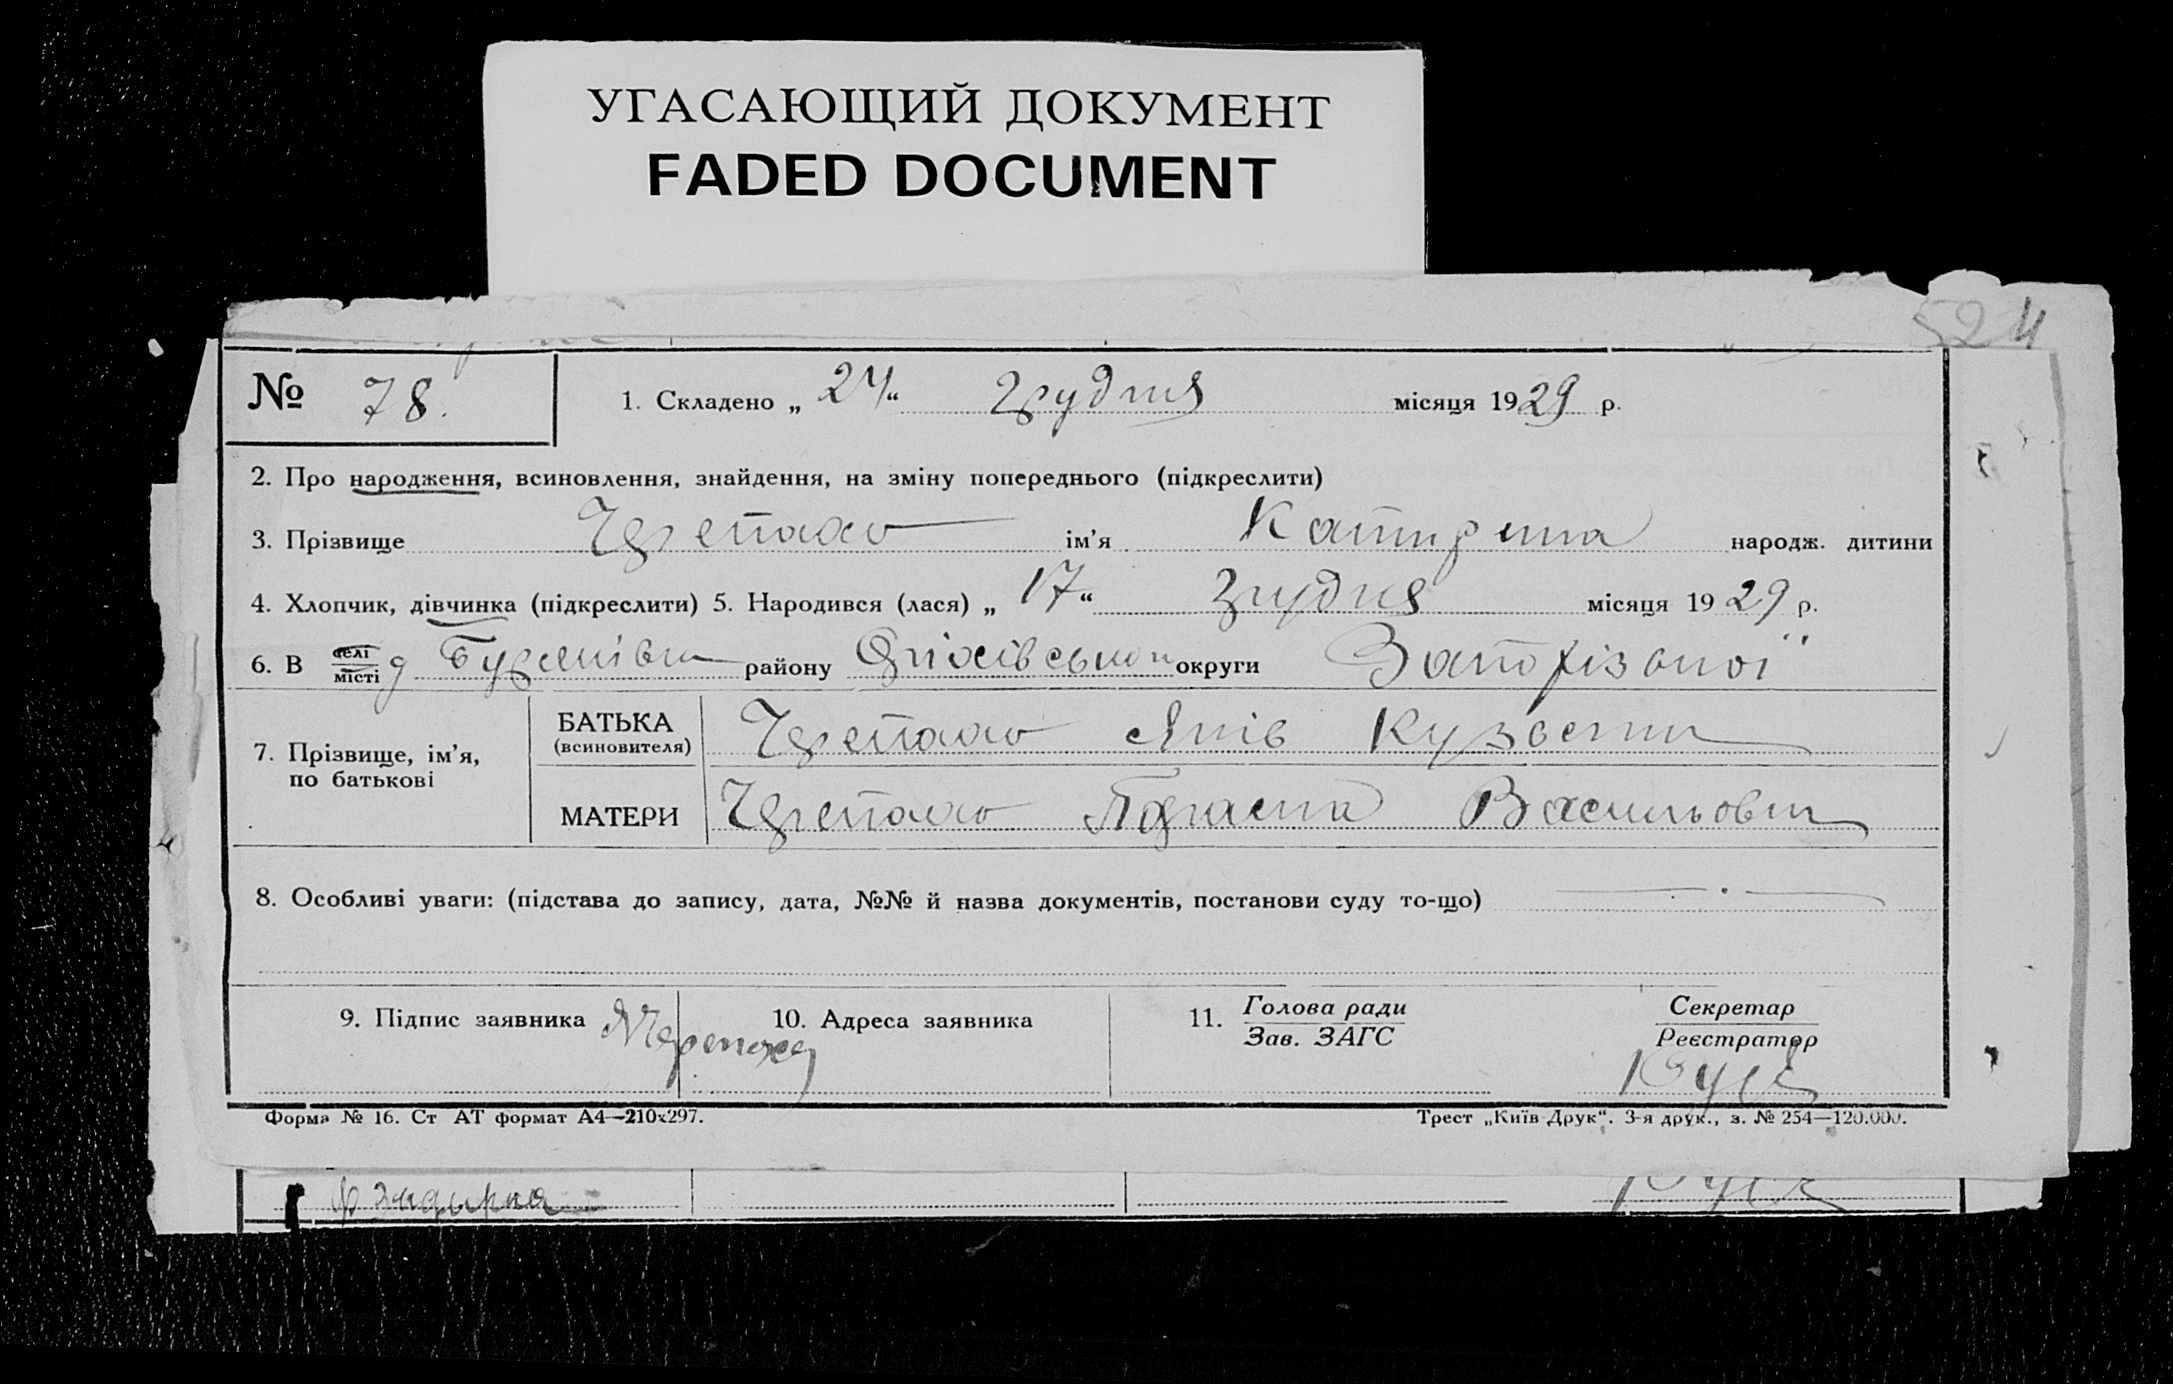 УГАСАЮЩИЙ ДОКУМЕНТ
FADED DOCUMENT
524
№ 78. 1. Складено „ 24 “ грудня місяця 1929 р.
2. Про народження, всиновлення, знайдення, на зміну попереднього (підкреслити)
3. Прізвище Черепаха ім’я Катирина народж. дитини
4. Хлопчик, дівчинка (підкреслити) 5. Народився (лася) „ 17 “ грудня місяця 1929 р.
6. В селі місті району округи Запорізької
7. Прізвище, ім’я, по батькові
БАТЬКА (всиновителя) Черепаха Яків Кузьмич
МАТЕРИ Черепаха Васильовна
8. Особливі уваги: (підстава до запису, дата, №№ й назва документів, постанови суду то-що)
9. Підпис заявника 10. Адреса заявника 11. Голова ради Зав. ЗАГС Секретар Реєстратор
Форма № 16. Ст АТ формат А4—210х297. Трест „Київ-Друк“. 3-я друк., з. № 254—120.000.